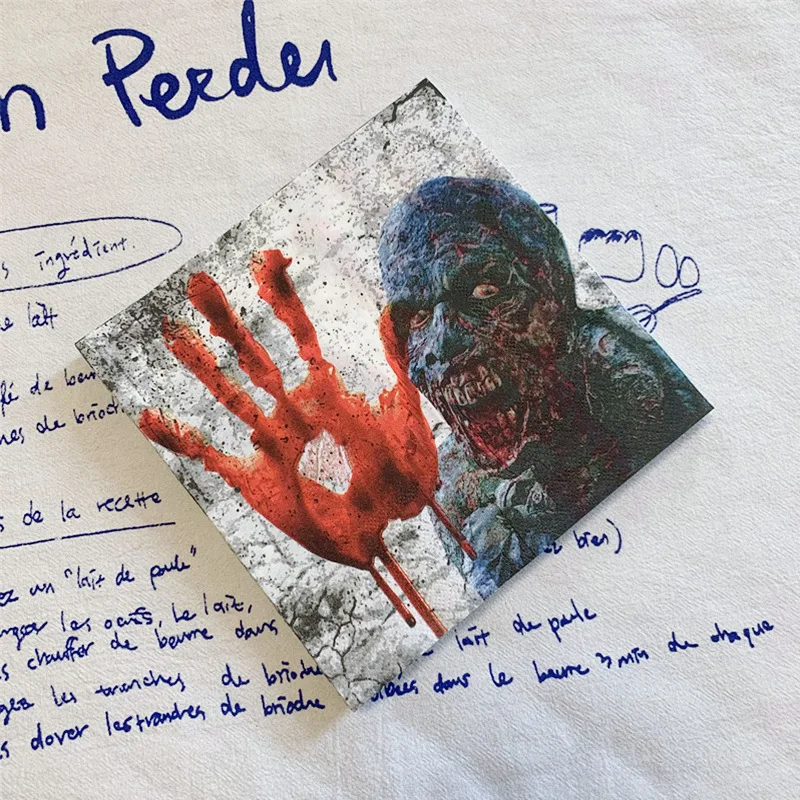 n Perdu
s ingrédient.
e lait
fé de beu
hes de brioch
s de la recette
ez un "lait de poule"
z bien)
les oeufs, Le lait,
s chauffer de beurre dans
lait de poule
gez les tranches de brioche
dans le beurre 3 min de chaque
s dorer les tranches de brioche